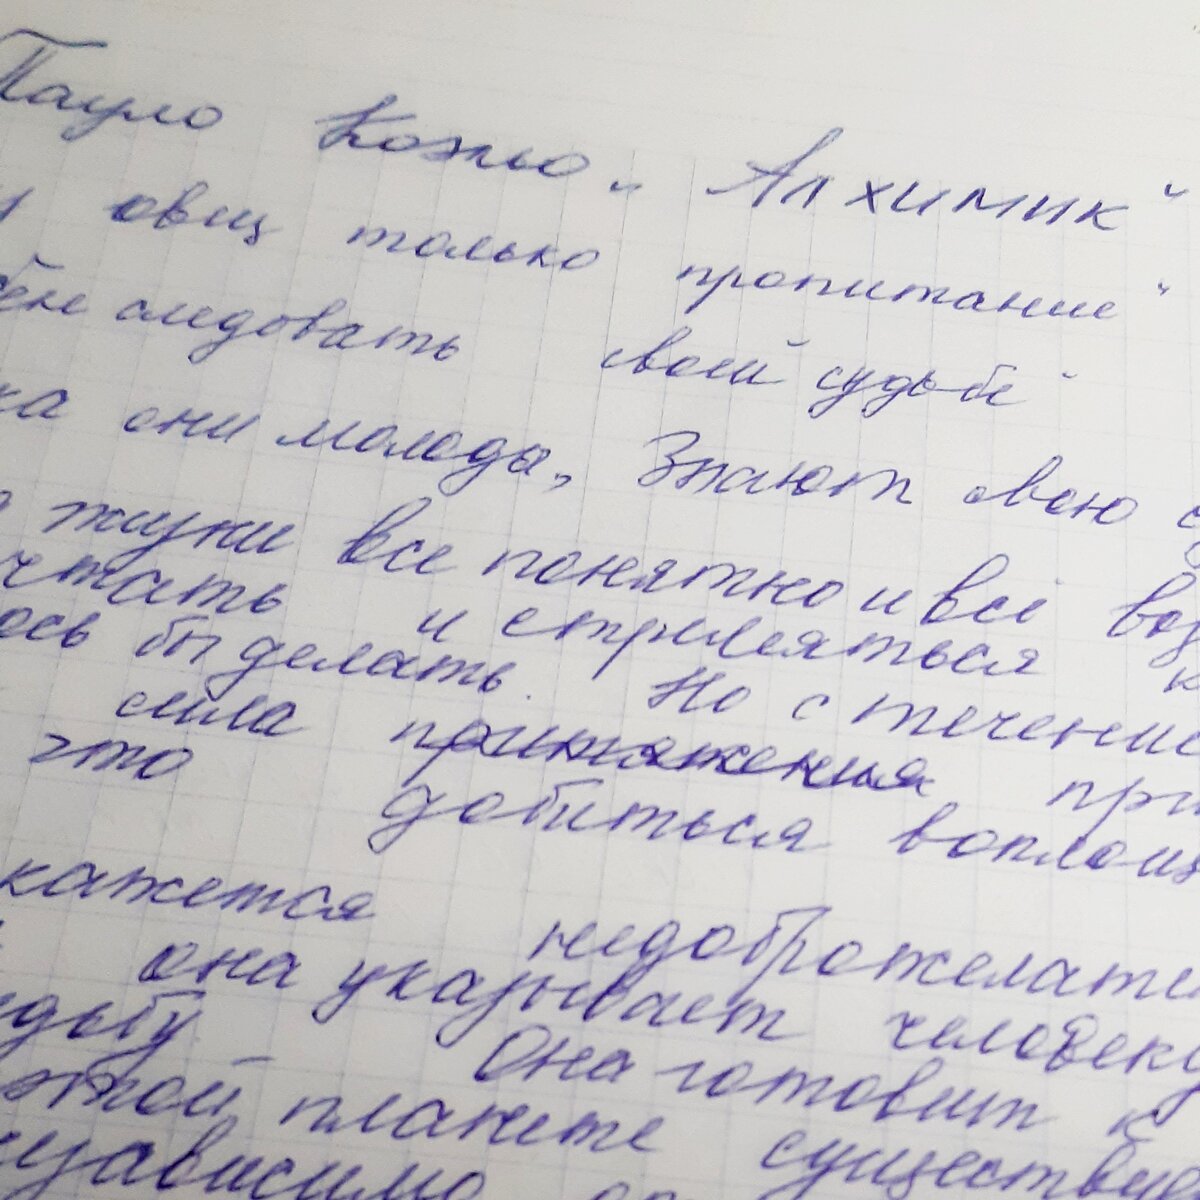 Пауло Коэльо „Алхимик"
овец только пропитание"
следовать своей судьбе"
ка они молоды, знают свою с
жизни все понятно и всё воз
чтать и стремиться к
ось бы делать. Но с течение
сила при
это добиться воплощ
кажется недоброжелате
она указывает человеку
удьбу. Она готовит к
этой планете существуе
независимо